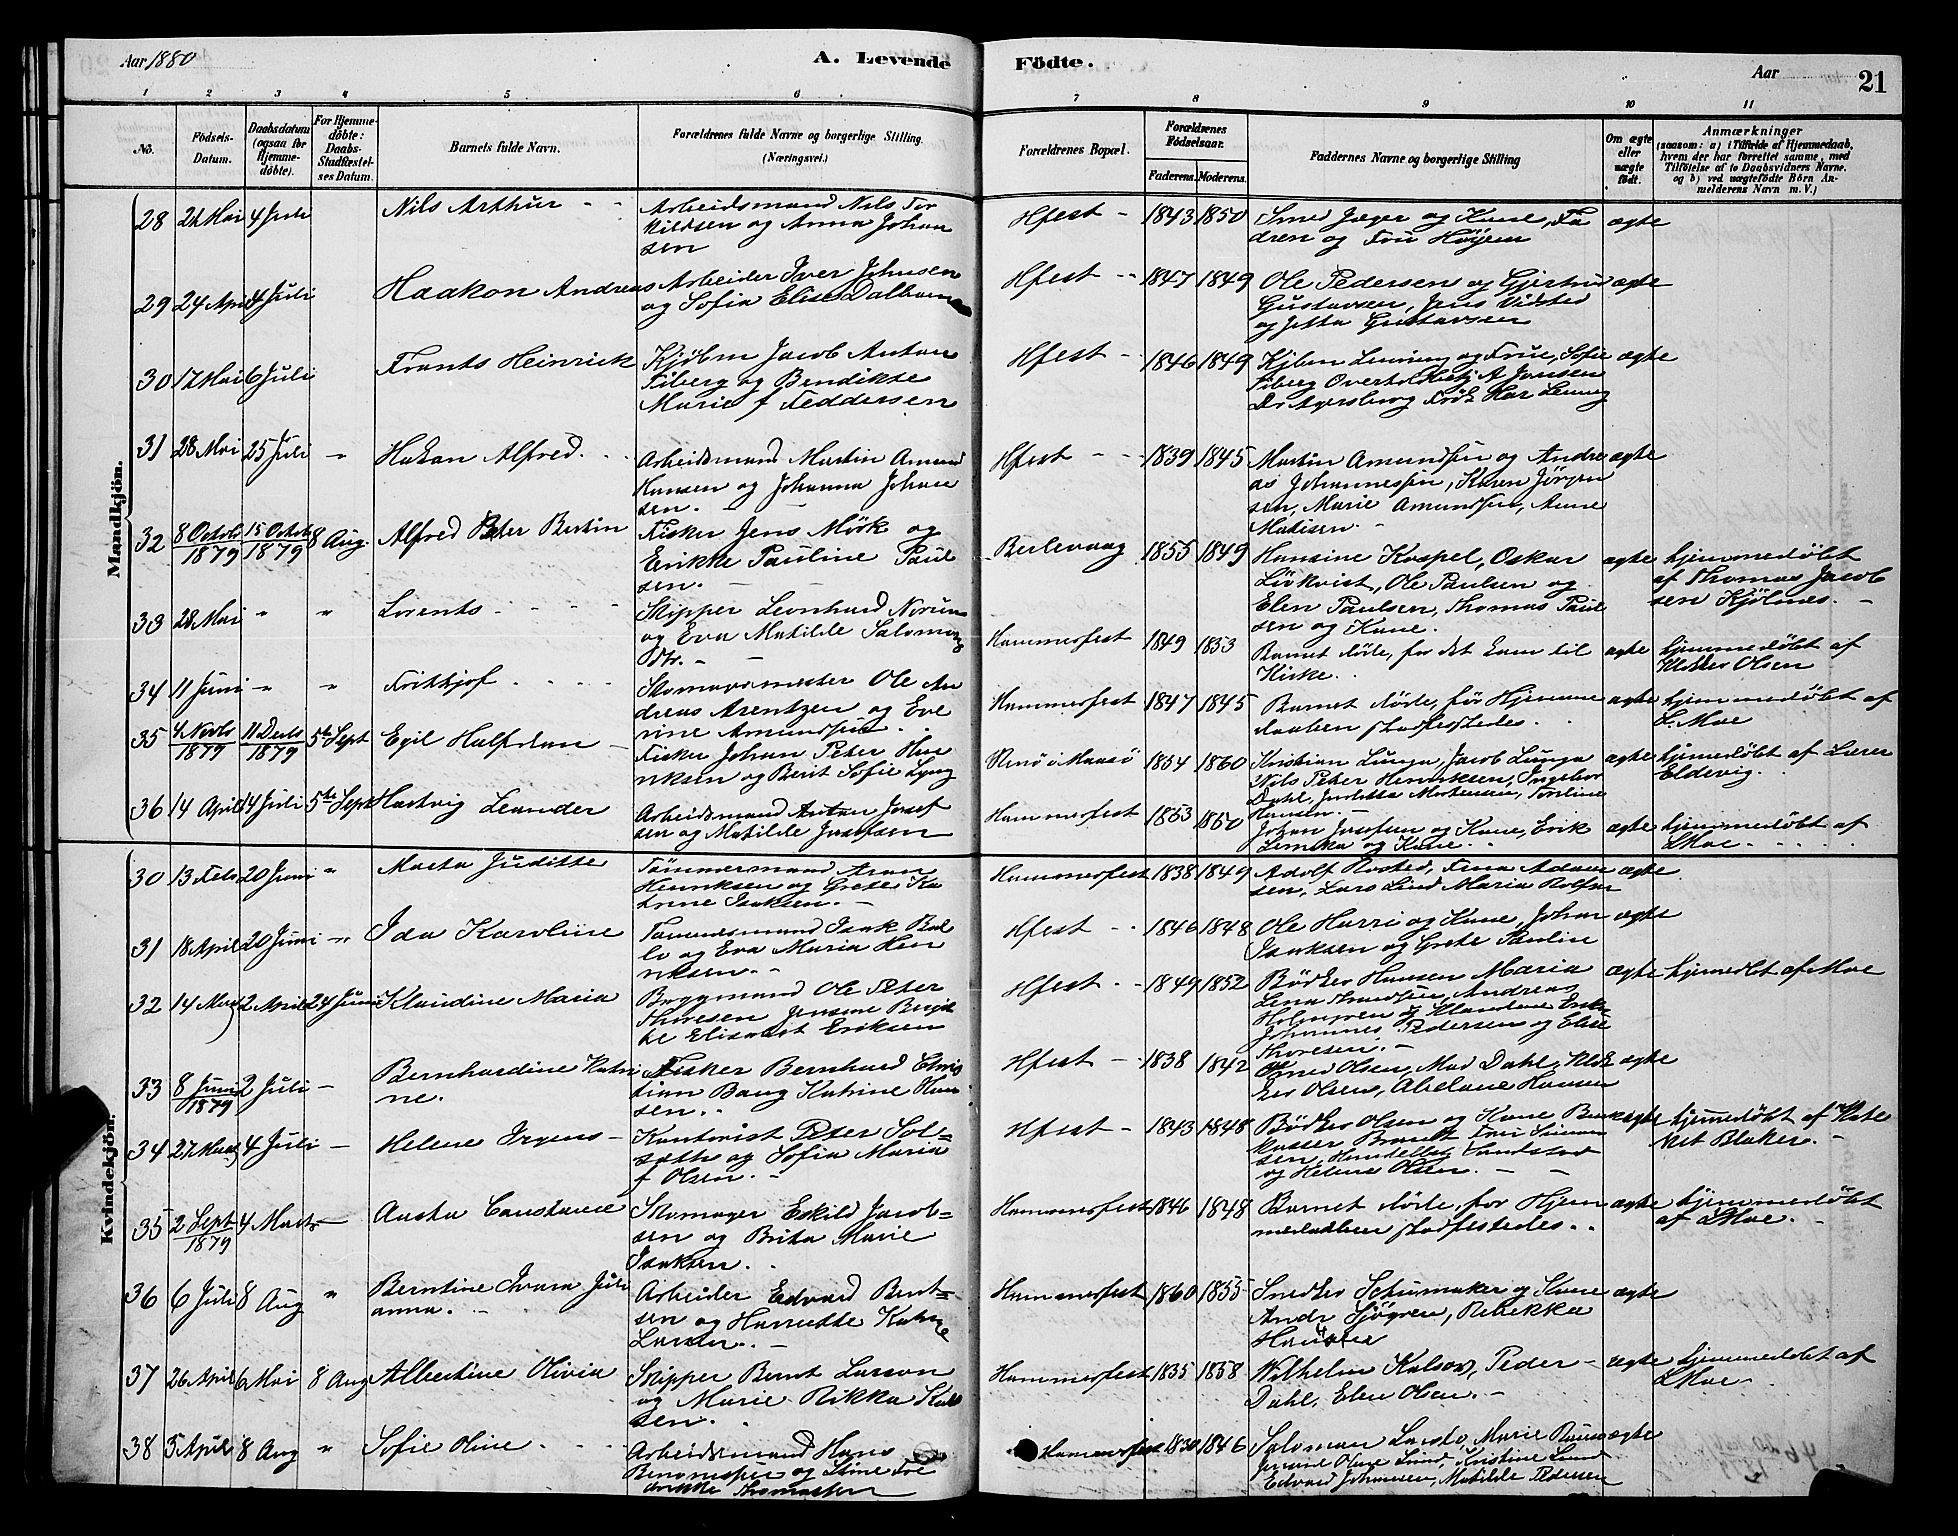 Aar 1880
A. Levende
Födte.
Aar
21
1 2 3 4 5 6 7 8 9 10 11
No.
Födsels-Datum.
Daabsdatum (ogsaa for Hjemmedöbte).
For Hjemmedöbte: Daabs-Stadfæstelses Datum.
Barnets fulde Navn.
Forældrenes fulde Navne og borgerlige Stilling. (Næringsvei.)
Forældrenes Bopæl.
Forældrenes Födselsaar.
Faderens. Moderens.
Faddernes Navne og borgerlige Stilling
Om ægte eller uægte födt.
Anmærkninger (saasom: a) i Tilfælde af Hjemmedaab, hvem der har forrettet samme, med Tilföielse af to Daabsvidners Navne. og b) ved uægtefödte Börn Anmelderens Navn m. V.)
Mandkjön.
28 21 Mai 4 Juli Nils Arthur Arbeidsmand Nils Tor
kildsen og Anna Johan
sen
Hfest 1843 1850 Smed Jæger og Kone, Fa
dren og Fru Höyem
ægte
29 24 April 4 Juli Haakon Andreas Arbeider Iver Johnsen
og Sofia Elise
Hfest 1847 1849 Ole Pedersen og Gjertrud
Gustavsen, Jens Vidsted
og Jetta Gustavsen
ægte
30 17 Mai 6 Juli Frants Heinrich Kjöbm Jacob Anton
Fiberg og Bendikte
Marie f Feddersen
Hfest 1846 1849 og Frue, Sofie
Fiberg A Jonsen
ægte
31 28 Mai 25 Juli " Hakan Alfred Arbeidsmand Martin Amund
Hansen og Johanna Johan
sen.
Hfest 1839 1845 Martin Amundsen og Andre
as Johannesen, Karen Jörgen
sen, Marie Amundsen, Anne
Matisen.
ægte
32 8 Octob 1879 15 Octob 1879 8 Aug. Alfred Peter Bertin Fisker Jens Mörk og
Erikke Pauline Paul
sen.
Berlevaag 1855 1849 Hansine Kospel, Oskar
Lövkvist, Ole Paulsen og
Elen Paulsen, Thomas Paul
sen og Kone.
ægte hjemmedöbt
af Thomas Jacob
sen Kjölnes.
33 28 Mai " " Lorents Skipper Leonhard Norum
og Eva Matilde Salomons
dtr.
Hammerfest 1849 1853 Barnet döde, för det kom til
Kirke.
ægte hjemmedöbt af
Klokker Olsen
34 11 Juni " " Frithjof Skomagermester Ole An
dreas Arentzen og Eve
rine Amundsen.
Hammerfest 1847 1845 Barnet döde, för Hjemme
daaben stadfestedes.
ægte hjemmedöbt af
L. Moe
35 4 Novb 1879 11 Decb 1879 5te Sept Egil Halfdan Fisker Johan Peter Hen
riksen og Berit Sofie Lyng
i Maasö 1854 1860 Kristian Lunga, Jacob Lunga
Nils Peter Henriksen, Ingebor
Dahl, Mortensen,
Hansen.
ægte hjemmedöbt af Lærer
Eldevig.
36 14 April 4 Juli 5te Sept Hartvig Leander Arbeidsmand Anton Josef
sen og Matilde Josefsen
Hammerfest 1853 1850 Johan Josefsen og Kone, Erik
og Kone.
ægte hjemmedöbt af
L Moe.
Kvindekjön.
30 13 Feb 20 Juni " Marta Juditte Tömmermand Aron
Henriksen og Grete Ka
trine Isaksen.
Hammerfest 1838 1849 Adolf Rosted, Fina Adam
sen, Lars Lind, Maria
ægte
31 18 April 20 Juni " Ida Karoline Isak Bal
lo og Eva Maria Hen
riksen.
Hfest 1846 1848 Ole Harri og Kone, Johan
Isaksen og Grete Paulin
ægte
32 14 Mars 2 April 24 Juni Klaudine Maria Byggmand Ole Peter
Thoresen Jensine Birgit
te Elisabet Eriksen
Hfest 1849 1852 Bödker Hansen Maria
Lena Andreas
Holmgren og Klaudine Erik
Johannes Pedersen og Elise
Thoresen.
ægte hjemdöbt af Moe
33 8 Juni 1879 2 Juli Bernhardine Katri
ne.
Fisker Bernhard Chris
tian Bang Katrine Han
sen.
Hfest 1838 1842 Olsen, Mad Dahl, Klok
ker Olsen, Abelone Hansen
ægte
34 27 Mars 4 Juli Helene Irgens Kontorist Peter Sol=
sæth og Sofia Maria
f Olsen.
Hfest 1843 1848 Bödker Olsen og Kone
Brandt Frue Simon
sen, Sandstad
og Helene Olsen.
ægte hjemmedöbt af
Blaker.
35 2 Sept 1879 4 Marts Aasta Constanse Skomager Eskild Jacob=
sen og Brita Marie
Isaksen.
Hammerfest 1846 1848 Barnet döde, för Hjem
medaaben stadfestedes.
ægte hjemmedöbt
af L Moe.
36 6 Juli 8 Aug " Berntine Ivara Juli
anna.
Arbeider Edvard Bernt=
sen og Harriette Katrine
Larsen.
Hammerfest 1860 1855 Snedker Schumaker og Kone
Andr Sjögren, Rebekka
ægte
37 26 April 6 Mai 8 Aug Albertine Olivia Skipper Bernt Larsen
og Marie Rikka Karl
sen.
Hammerfest 1835 1858 Wilhelm Kalsow, Peder
Dahl, Elen Olsen.
ægte hjemmedöbt af
L Moe
38 5 April 8 Aug " Sofie Oline Arbeidsmand Hans
og Stine Fre
drikke Thomassen
Hammerfest 1830 1846 Salomon Marie
Oline Lund, Kristine Lund
Edvard Johannesen, Matilde Pedersen
ægte